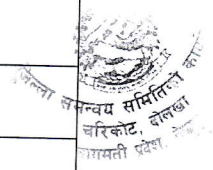 जिल्ला समन्वय समितिको का
चरिकोट, दोलखा
बागमती प्रदेश,